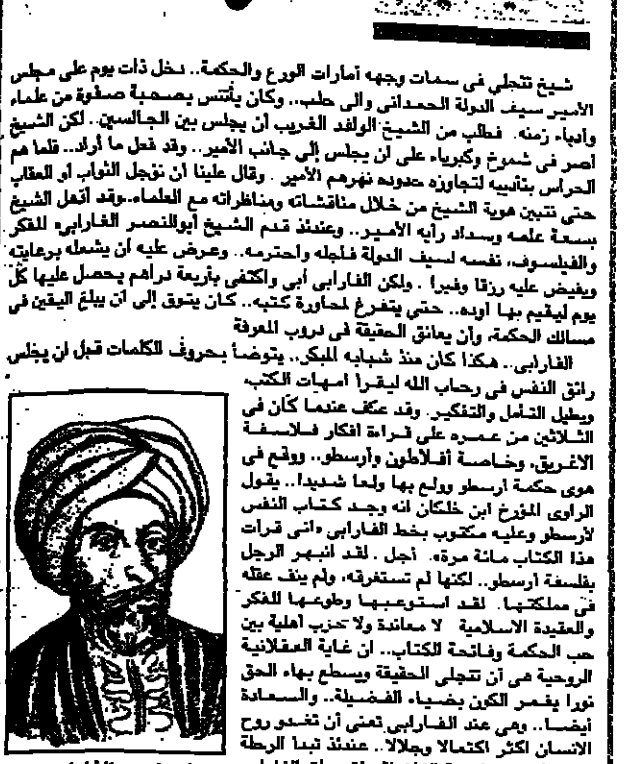 شيخ تتجلى فى سمات وجهه أمارات الورع والحكمة.. دخل ذات يوم على مجلس
الأمير سيف الدولة الحمدانى والى حلب.. وكان يأتنس بصحبة صفوة من علماء
وأدباء زمنه. فطلب من الشيخ الوافد الغريب أن يجلس بين الجالسين.. لكن الشيخ
أصر فى شموخ وكبرياء على أن يجلس إلى جانب الأمير.. وقد فعل ما أراد.. فلما هم
الحراس بتأديبه لتجاوزه حدوده نهرهم الأمير. وقال علينا أن نؤجل الثواب أو العقاب
حتى نتبين هوية الشيخ من خلال مناقشاته ومناظراته مع العلماء..وقد أذهل الشيخ
بسعة علمه وبسداد رأيه الأمير.. وعندئذ قدم الشيخ أبوالنصر الفارابى، المفكر
والفيلسوف، نفسه لسيف الدولة فأجله واحترمه.. وعرض عليه أن يشمله برعايته
ويفيض عليه رزقا وفيرا. ولكن الفارابى أبى واكتفى بأربعة دراهم يحصل عليها كل
يوم ليقيم بها أوده.. حتى يتفرغ لمحاورة كتبه.. كان يتوق إلى أن يبلغ اليقين فى
مسالك الحكمة، وأن يعانق الحقيقة فى دروب المعرفة
الفارابى.. هكذا كان منذ شبابه المبكر.. يتوضأ بحروف الكلمات قبل أن يجلس
رائق النفس فى رحاب الله ليقرأ أمهات الكتب،
ويطيل التأمل والتفكير. وقد عكف عندما كان فى
الثلاثين من عمره على قراءة أفكار فلاسفة
الاغريق، وخاصة أفلاطون وأرسطو.. ووقع فى
هوى حكمة أرسطو وولع بها ولعا شديدا.. يقول
الراوى المؤرخ ابن خلكان انه وجد كتاب النفس
لأرسطو وعليه مكتوب بخط الفارابى «انى قرأت
هذا الكتاب مائة مرة». أجل. لقد انبهر الرجل
بفلسفة أرسطو.. لكنها لم تستغرقه، ولم ينف عقله
فى مملكتها. لقد استوعبها وطوعها للفكر
وللعقيدة الاسلامية لا معاندة ولا حرب أهلية بين
حب الحكمة وفاتحة الكتاب.. ان غاية العقلانية
الروحية هى أن تتجلى الحقيقة ويسطع بهاء الحق
نورا يغمر الكون بضياء الفضيلة.. والسعادة
أيضا.. وهى عند الفارابى تعنى أن تغدو روح
الانسان أكثر اكتمالا وجلالا.. عندئذ تبدأ الرحلة